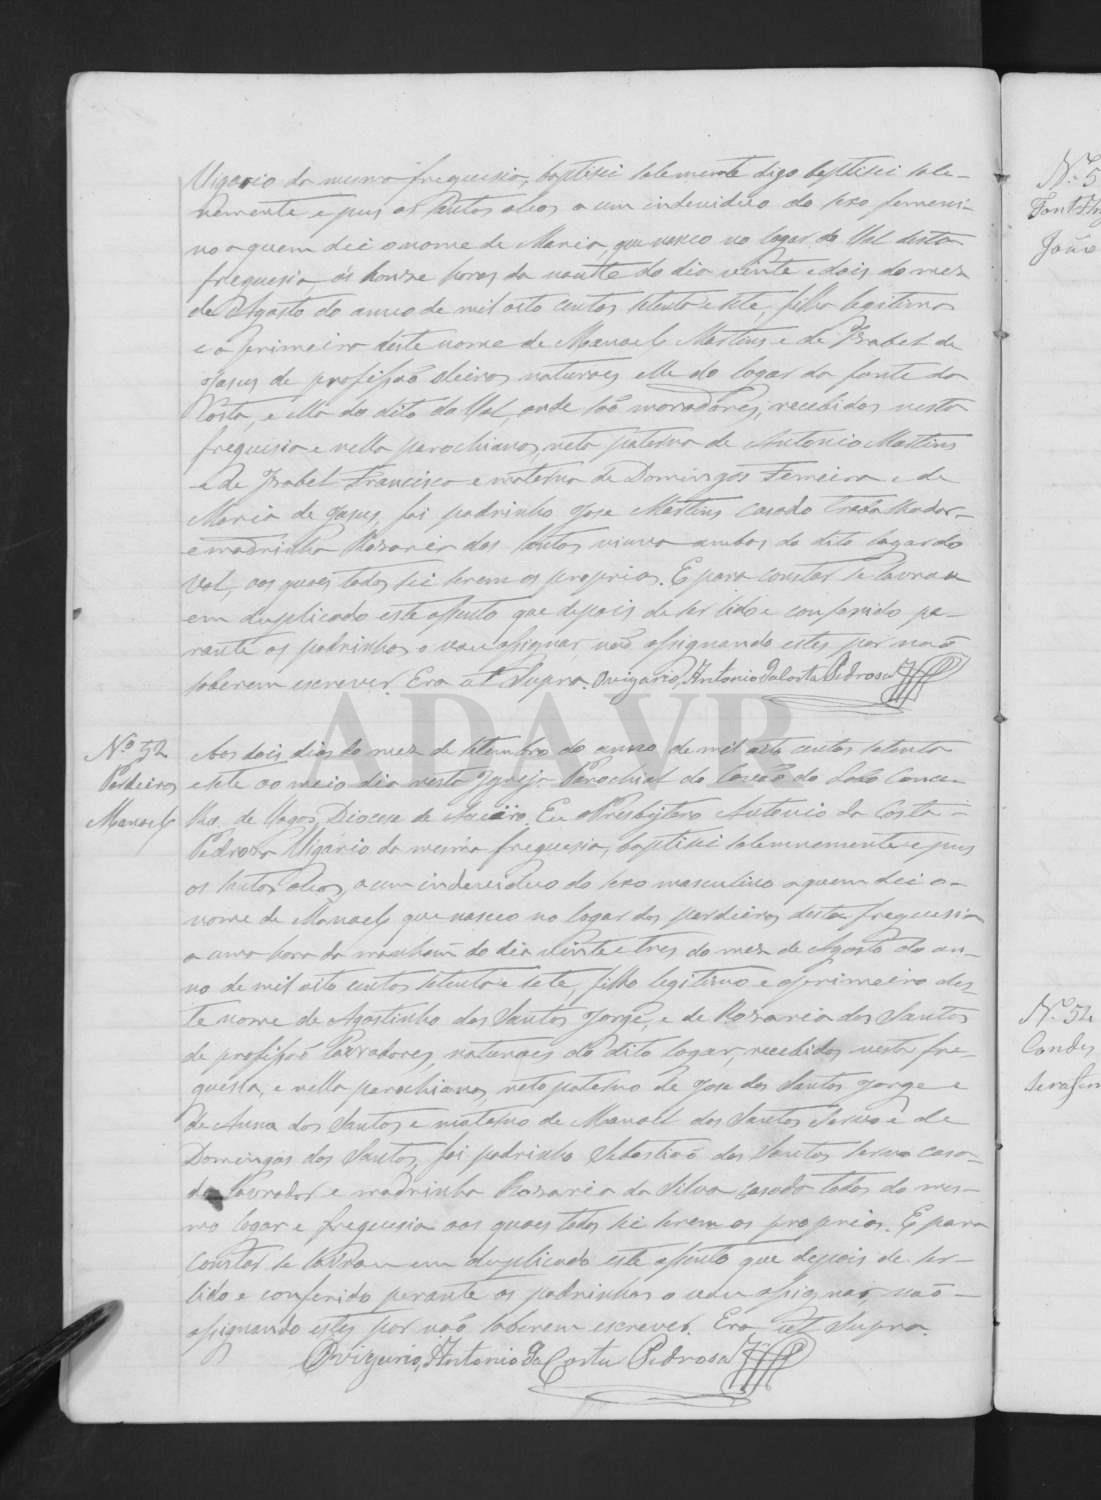 Vigario da mesma freguesia, baptisei solemnente digo baptisei sole-
nemente e pus os santos oleos a um individuo do sexo femeni-
no a quem dei o nome de Maria, que nasceo no logar do Val desta
freguesia ás honze horas da noute do dia vinte e dois do mez
de Agosto do anno de mil oito centos setenta e sete, filha legitima
e a primeira deste nome de Manoel Martins e de Izabel de
Jasus de profissaõ oleiros, naturaes elle do logar da fonte da
Costa, e ella do dito do Val, onde saõ moradores, recebidos nesta
freguesia e nella parochianos, neta paterna de Antonio Martins
e de Izabel Francisca e materna de Domingos Ferreira e de
Maria de Jasus, foi padrinho Jose Martins casado
e madrinha Rosaria dos Santos viuva ambos do dito logar do
Val, aos quaes todos sei serem os proprios. E para constar se lavrou
em duplicado este assento que depois de ser lido e conferido pe-
rante os padrinhos o vou assignar, naõ assignando estes por naõ
saberem escrever. Era ut Supra. O vigario, Antonio da Costa Pedrosa
Nº 52
Pardeiros
Manoel
Aos dois dias do mez de Setembro do anno de mil oito centos setenta
e sete ao meio dia nesta Igreja Parochial do Covaõ do Lobo Conce-
lho de Vagos, Diocese de Aveiro. Eu o Presbytero Antonio da Costa
Pedrosa Vigario da mesma freguesia, baptisei solemnemente e pus
os santos oleos, a um individuo do sexo masculino a quem dei o
nome de Manoel, que nasceo no logar dos pardeiros desta freguesia
a uma hora da manham do dia vinte e tres do mez de Agosto do an-
no de mil oito centos setenta e sete, filho legitimo e o primeiro des-
te nome de Agostinho dos Santos Jorge, e de Rosaria dos Santos
de profissaõ Lavradores, naturaes do dito logar, recebidos nesta fre-
guesia, e nella parochianos, neto paterno de Jose dos Santos Jorge e
de Anna dos Santos e materno de Manoel dos Santos e de
Domingas dos Santos, foi padrinho Sebastiaõ dos Santos casa-
do Lavrador e madrinha Rosaria da Silva casada todos do mes-
mo logar e freguesia aos quaes todos sei serem os proprios. E para
constar se lavrou em duplicado este assento que depois de ser
lido e conferido perante os padrinhos o vou assignar, naõ
assignando estes por naõ saberem escrever. Era ut Supra.
O vigario, Antonio da Costa Pedrosa
ADAVR
Nº 5
João
Nº 54
Condes
Serafim